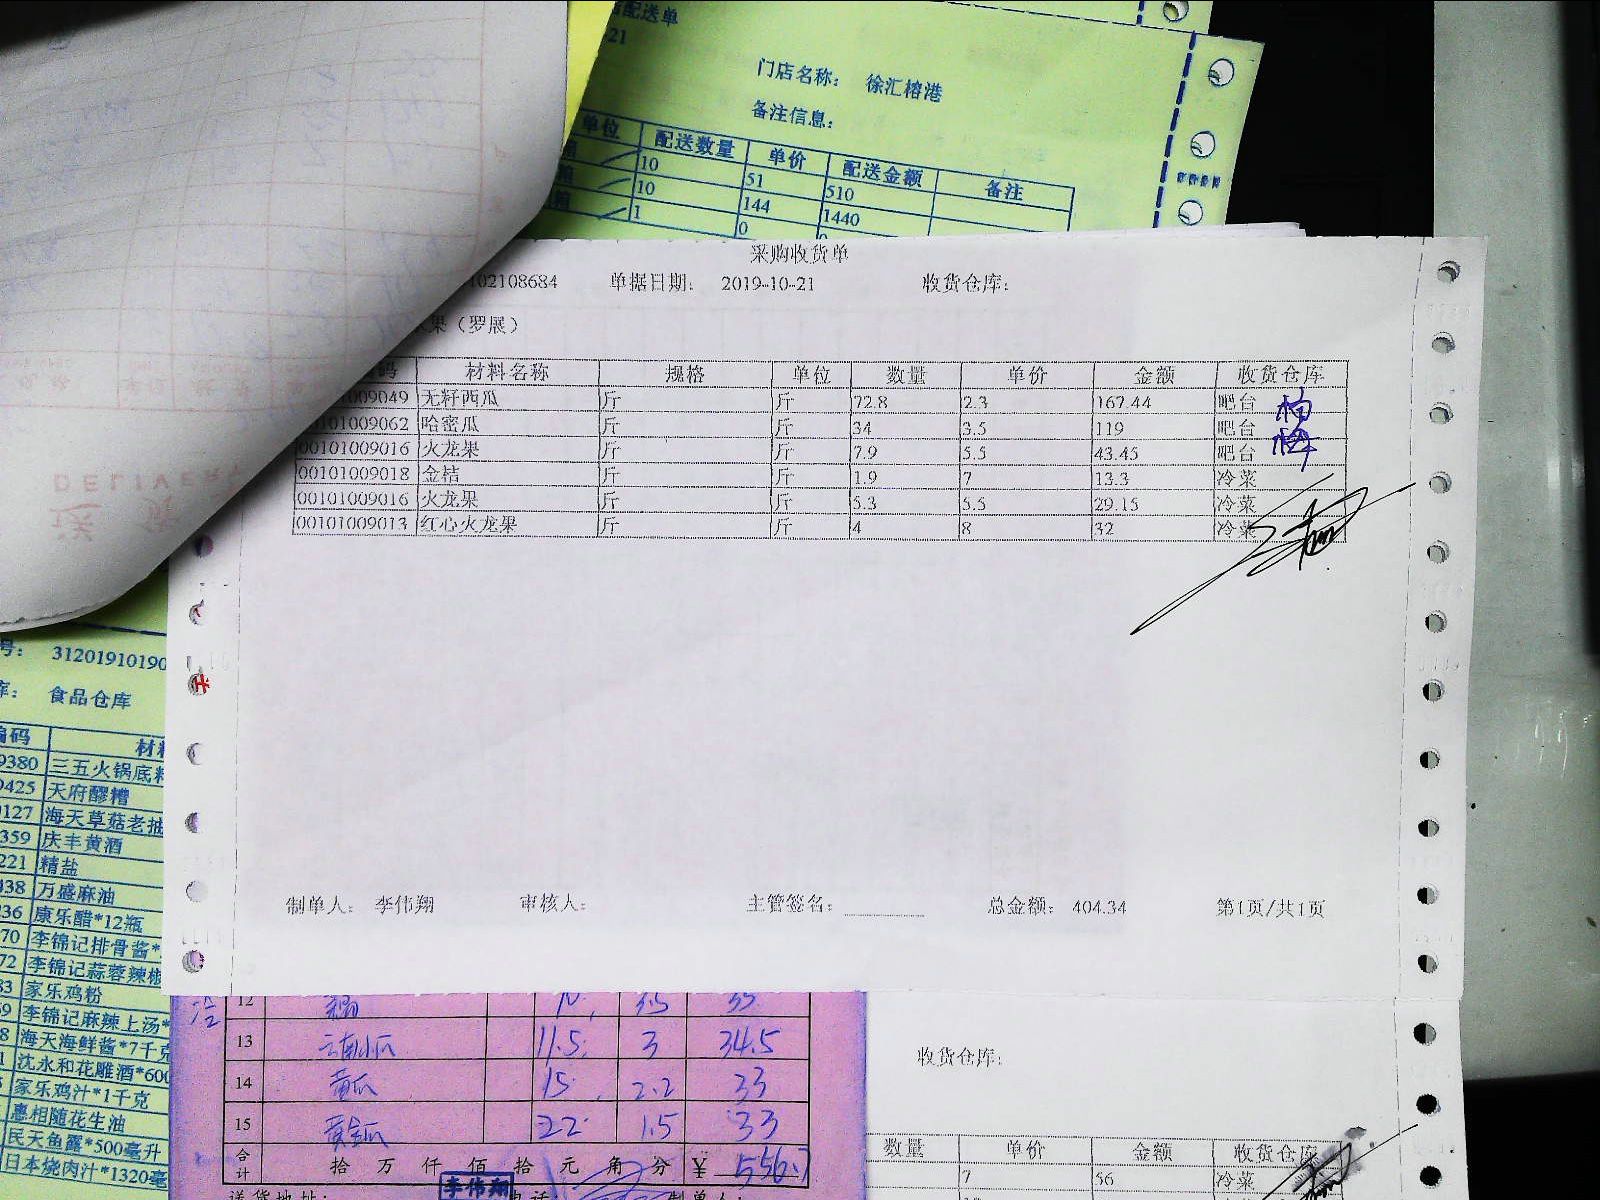 配送单
-21
门店名称： 徐汇榕港
备注信息：
单位 配送数量 单价 配送金额 备注
10 51 510
10 144 1440
1 0
采购收货单
102108684 单据日期： 2019-10-21 收货仓库：
果（罗展）
码 材料名称 规格 单位 数量 单价 金额 收货仓库
009049 无籽西瓜 斤 斤 72.8 2.3 167.44 吧台
101009062 哈密瓜 斤 斤 34 3.5 119 吧台
00101009016 火龙果 斤 斤 7.9 5.5 43.45 吧台
00101009018 金桔 斤 斤 1.9 7 13.3 冷菜
00101009016 火龙果 斤 斤 5.3 5.5 29.15 冷菜
00101009013 红心火龙果 斤 斤 4 8 32 冷菜
制单人： 李伟翔 审核人： 主管签名： 总金额： 404.34 第1页/共1页
DELIVERY
送
号： 31201910190
库： 食品仓库
编码 材
9380 三五火锅底料
0425 天府醪糟
0127 海天草菇老抽
359 庆丰黄酒
221 精盐
038 万盛麻油
036 康乐醋*12瓶
70 李锦记排骨酱*
72 李锦记蒜蓉辣椒
83 家乐鸡粉
69 李锦记麻辣上汤*
8 海天海鲜酱*7千克
1 沈永和花雕酒*600
家乐鸡汁*1千克
惠相随花生油
民天鱼露*500毫升
日本烧肉汁*1320毫
冷
12 10 3.5 35
13 云南小瓜 11.5 3 34.5
14 黄瓜 15 2.2 33
15 黄金瓜 22 1.5 33
合计 拾 万 仟 佰 拾 元 角 分 ¥ 556.7
送货地址： 李伟翔 电话： 制单人：
收货仓库：
数量 单价 金额 收货仓库
7 56 冷菜